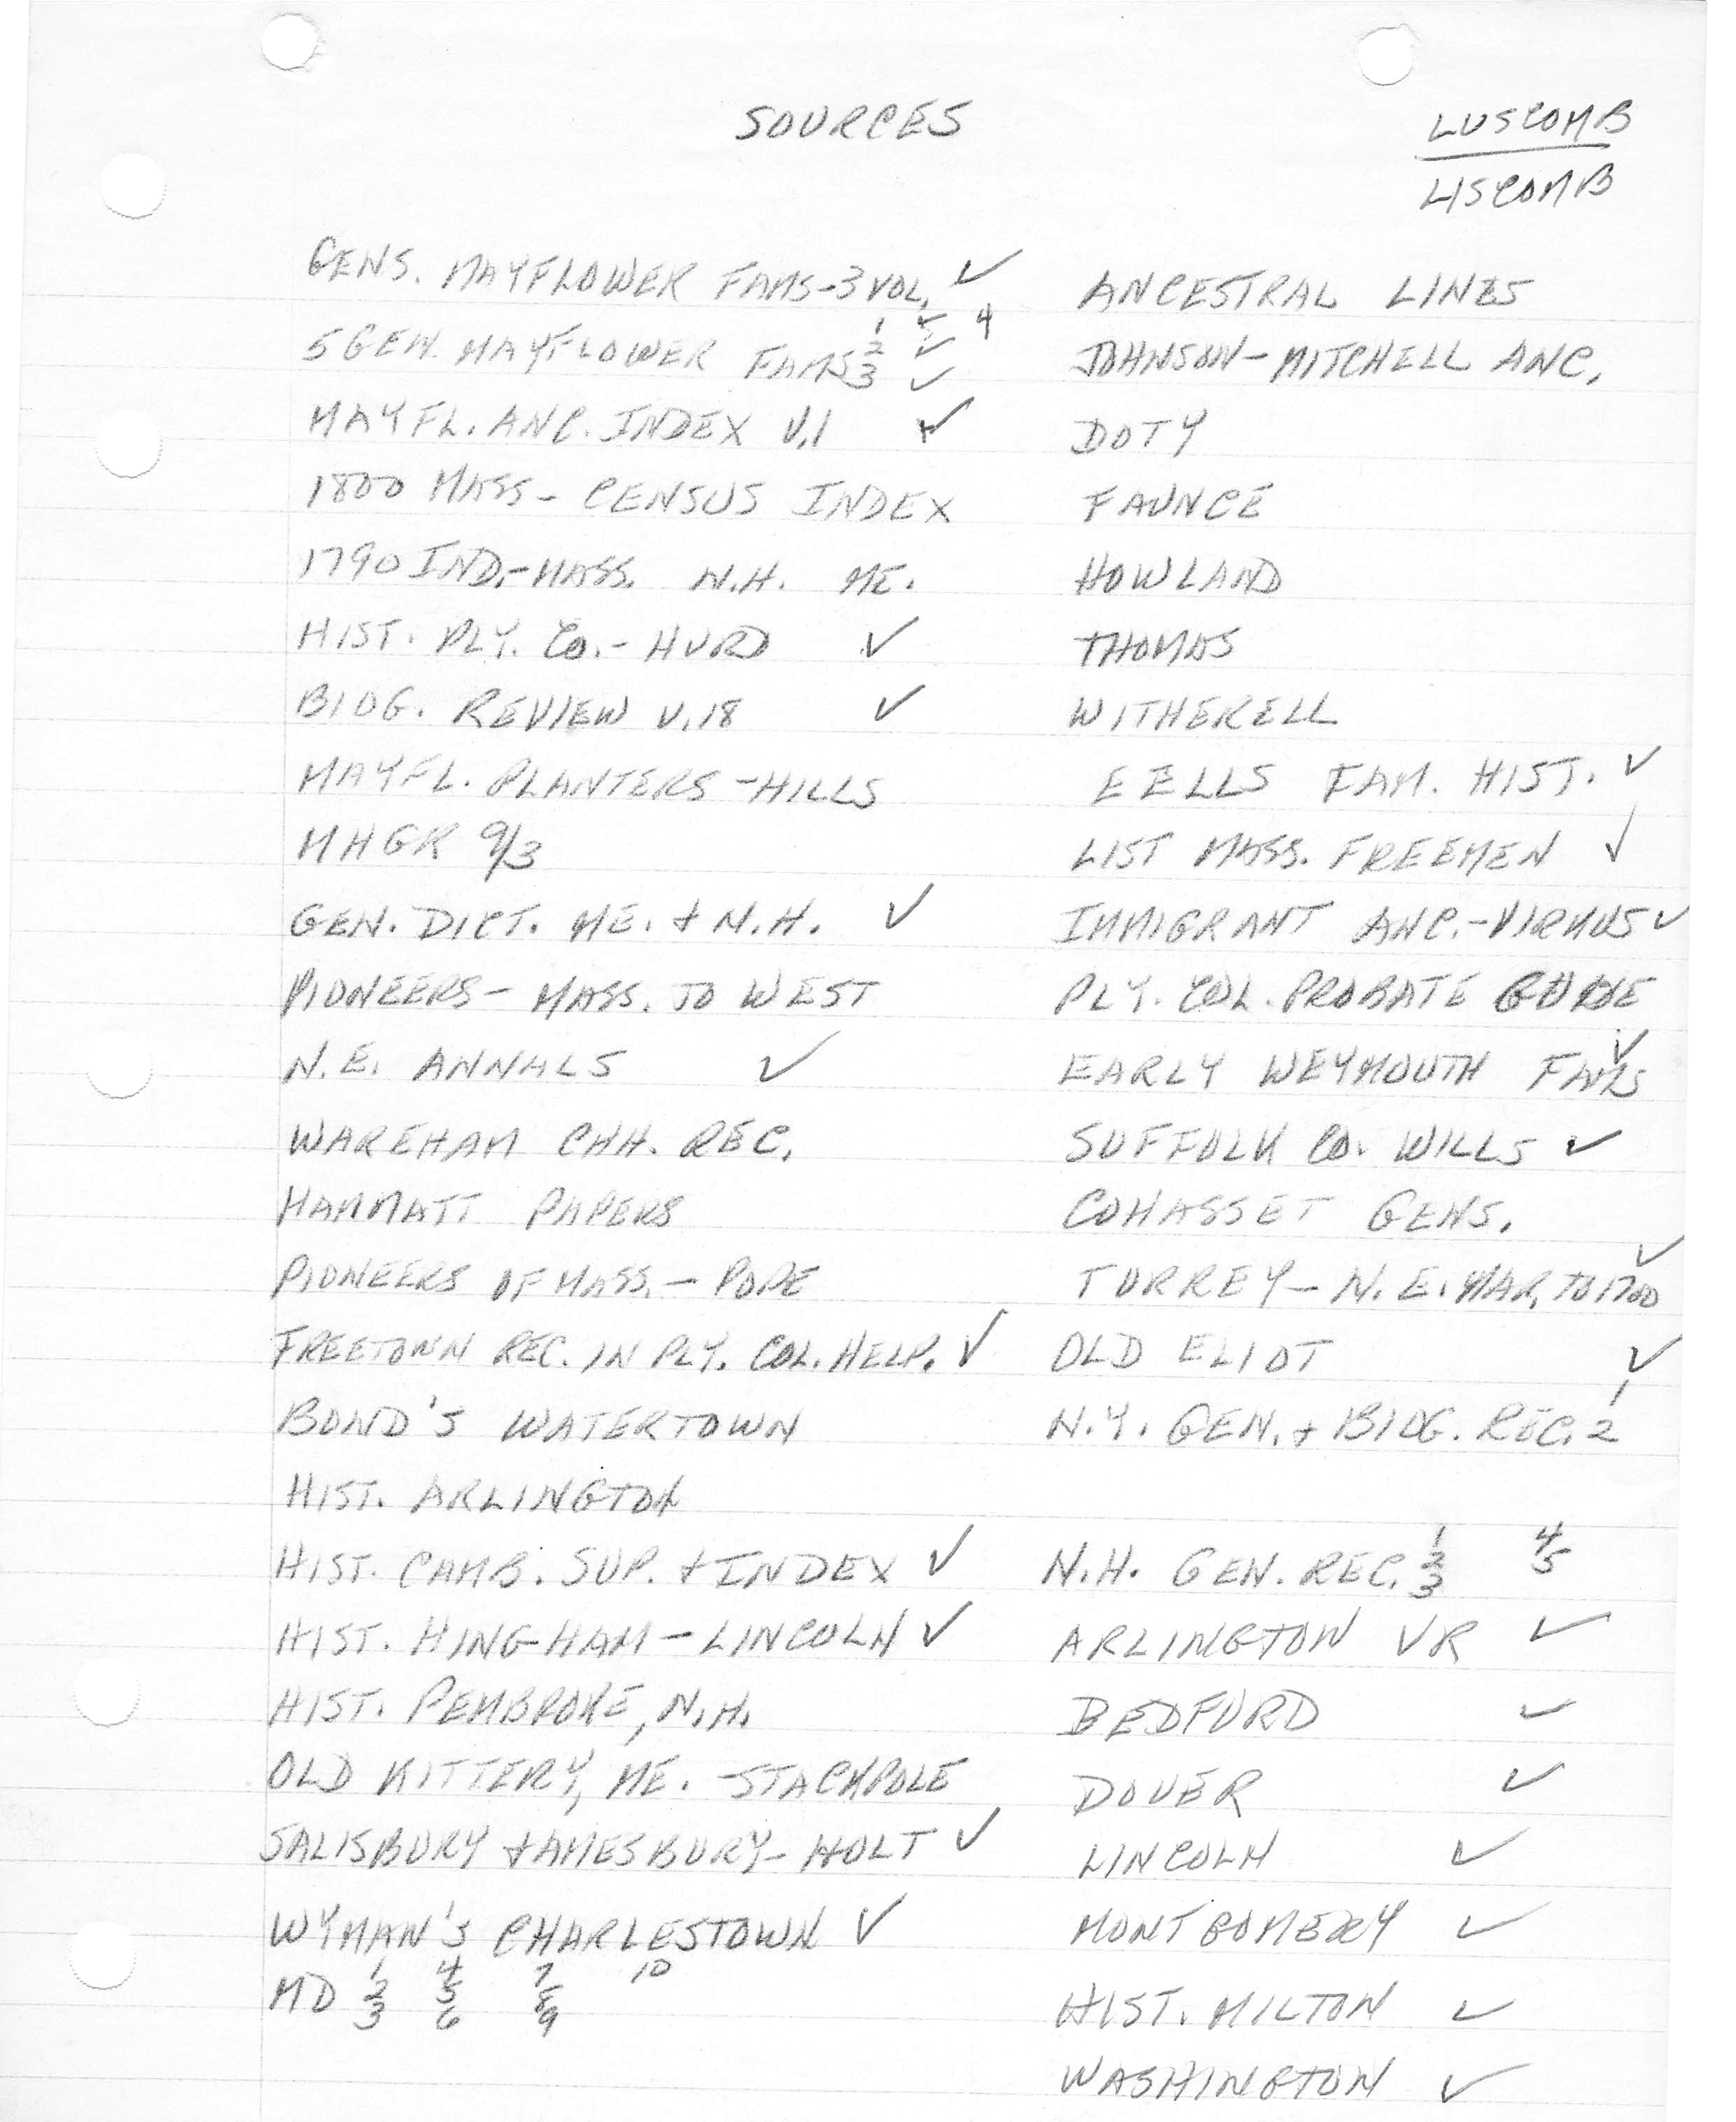 SOURCES
LUSCOMB
LISCOMB
GENS. MAYFLOWER FAMS-3 VOL. ✓
5 GEN. MAYFLOWER FAMS 1 2 ✓ 3 ✓ 4
MAYFL. ANC. INDEX V.1 ✓
1800 MASS - CENSUS INDEX
1790 IND.-MASS. N.H. ME.
HIST. PLY. CO.- HURD ✓
BIOG. REVIEW V.18 ✓
MAYFL. PLANTERS - HILLS
MHGR 9/3
GEN. DICT. ME. + N.H. ✓
PIONEERS - MASS. TO WEST
N.E. ANNALS ✓
WAREHAM CHH. REC.
HAMMATT PAPERS
PIONEERS OF MASS. - POPE
FREETOWN REC. IN PLY. COL. HELP. ✓
BOND'S WATERTOWN
HIST. ARLINGTON
HIST. CAMB. SUP. + INDEX ✓
HIST. HINGHAM - LINCOLN ✓
HIST. PEMBROKE, N.H.
OLD KITTERY, ME. - STACKPOLE
SALISBURY + AMESBURY - HOLT ✓
WYMAN'S CHARLESTOWN ✓
MD 1 2 3 4 5 6 7 8 9 10
ANCESTRAL LINES
JOHNSON - MITCHELL ANC.
DOTY
FAUNCE
HOWLAND
THOMAS
WITHERELL
EELLS FAM. HIST. ✓
LIST MASS. FREEMEN ✓
IMMIGRANT ANC.-VIRKUS ✓
PLY. COL. PROBATE GUIDE
EARLY WEYMOUTH FAMS ✓
SUFFOLK CO. WILLS ✓
COHASSET GENS.
TORREY - N.E. MAR. TO 1700 ✓
OLD ELIOT ✓
N.Y. GEN. + BIOG. REC. 1 2
N.H. GEN. REC. 1 2 3 4 5
ARLINGTON VR ✓
BEDFORD ✓
DOVER ✓
LINCOLN ✓
MONTGOMERY ✓
HIST. MILTON ✓
WASHINGTON ✓